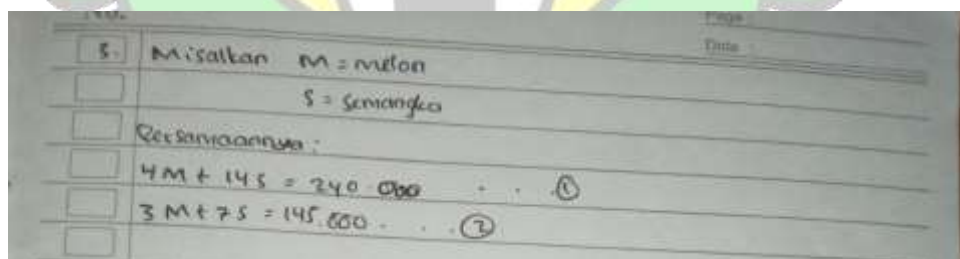 No.
Page :
Date :
5. Misalkan M = melon
S = semangka
Persamaannya :
4M + 14S = 240 000 . . ①
3M + 7S = 145.000 . . . ②